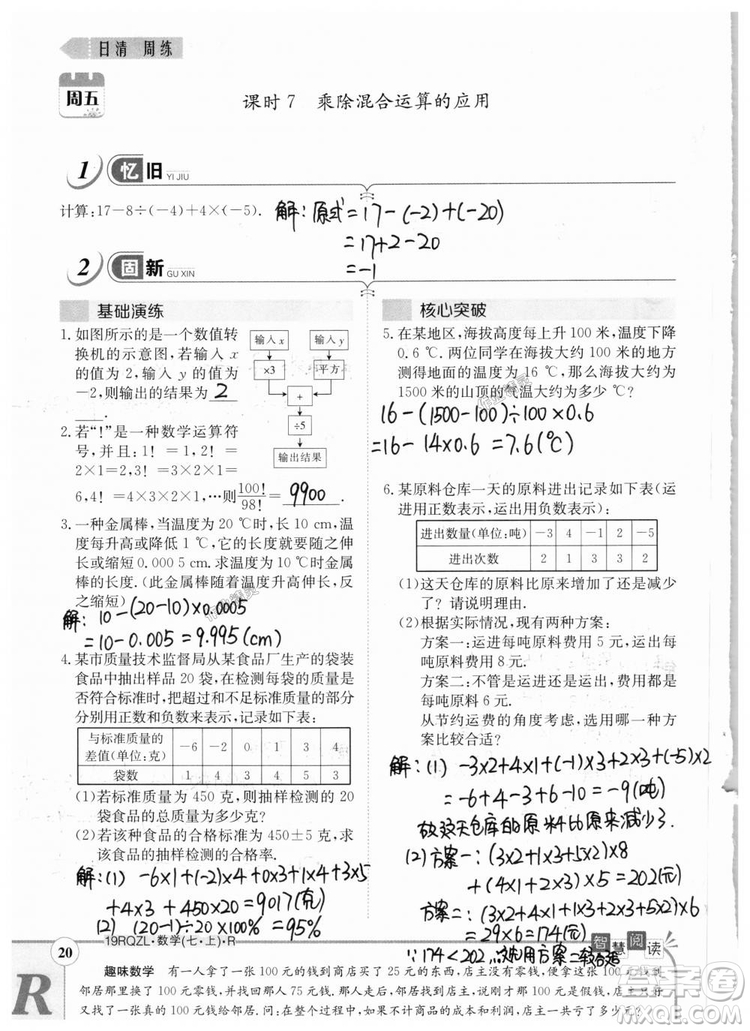 日清 周练
周五
课时7 乘除混合运算的应用
1 忆旧 YI JIU
计算:17-8÷(-4)+4×(-5).
解:原式=17-(-2)+(-20)
=17+2-20
=-1
2 固新 GU XIN
基础演练
1.如图所示的是一个数值转
换机的示意图,若输入 x
的值为 2,输入 y 的值为
-2,则输出的结果为 2
.
输入 x 输入 y
×3 平方
+
÷5
输出结果
2.若“!”是一种数学运算符
号,并且:1!=1,2!=
2×1=2,3!=3×2×1=
6,4!=4×3×2×1,…则100!/98!= 9900 .
3.一种金属棒,当温度为 20 ℃时,长 10 cm,温
度每升高或降低 1 ℃,它的长度就随之伸
长或缩短 0.000 5 cm,求当温度为 10 ℃时金属
棒的长度.(此金属棒随温度升高伸长,降低缩短)
解:10-(20-10)×0.0005
=10-0.005=9.995(cm)
4.某市质量技术监督局从某食品厂生产的袋装
食品中抽出样品 20 袋,在检测每袋的质量是
否符合标准时,把超过和不足标准质量的部
分分别用正数和负数来表示,记录如下表:
与标准质量的差值(单位:克) -6 -2 0 1 3 4
袋数 1 4 3 4 5 3
(1)若标准质量为 450 克,则抽样检测的 20
袋食品的总质量为多少克?
(2)若该种食品的合格标准为 450±5 克,求
该食品的抽样检测的合格率.
解:(1) -6×1+(-2)×4+0×3+1×4+3×5
+4×3+450×20=9017(克)
(2) 19÷20×100%=95%
核心突破
5.在某地区,海拔高度每上升 100 米,温度下降
0.6 ℃.两位同学在海拔大约为 100 米的地方
测得的气温为 16 ℃,那么海拔高度大约为
1500 米的山顶的气温大约为多少 ℃?
16-(1500-100)÷100×0.6
=16-14×0.6=7.6(℃)
6.某原料仓库一天的原料进出记录如下表(运
进用正数表示,运出用负数表示):
进出数量(单位:吨) -3 4 -1 2 -5
进出次数 2 1 3 3 2
(1)这天仓库的原料比原来增加了还是减少
了?请说明理由.
(2)根据实际情况,现有两种方案:
方案一:运进每吨原料费用 5 元,运出每
吨原料费用 8 元.
方案二:不管是运进还是运出,费用都是
每吨原料 6 元.
从节约运费的角度考虑,选用哪一种方案
比较合适?
解:(1) -3×2+4×1+(-1)×3+2×3+(-5)×2
=-6+4-3+6-10=-9(吨)
故这天仓库的原料比原来减少了.
(2)方案一:(3×2+1×3+5×2)×8
+(4×1+2×3)×5=202(元)
方案二:(3×2+4×1+1×3+2×3+5×2)×6
=29×6=174(元)
∵174<202,∴选用方案二较合适
智慧阅读
20
19RQZL·数学(七·上)·R
R
趣味数学 有一人拿了一张 100 元的钱到商店买了 25 元的东西,店主没有零钱,便拿这张 100 元的钱到隔
邻居那里换了 100 元零钱,并找回那人 75 元钱.
又找了一张 100 元的钱给邻居.问: